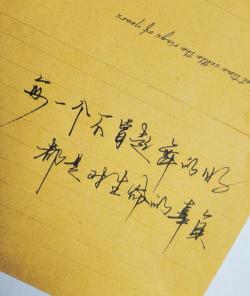 time settle the rings of years
每一个不曾起舞的日子
都是对生命的辜负